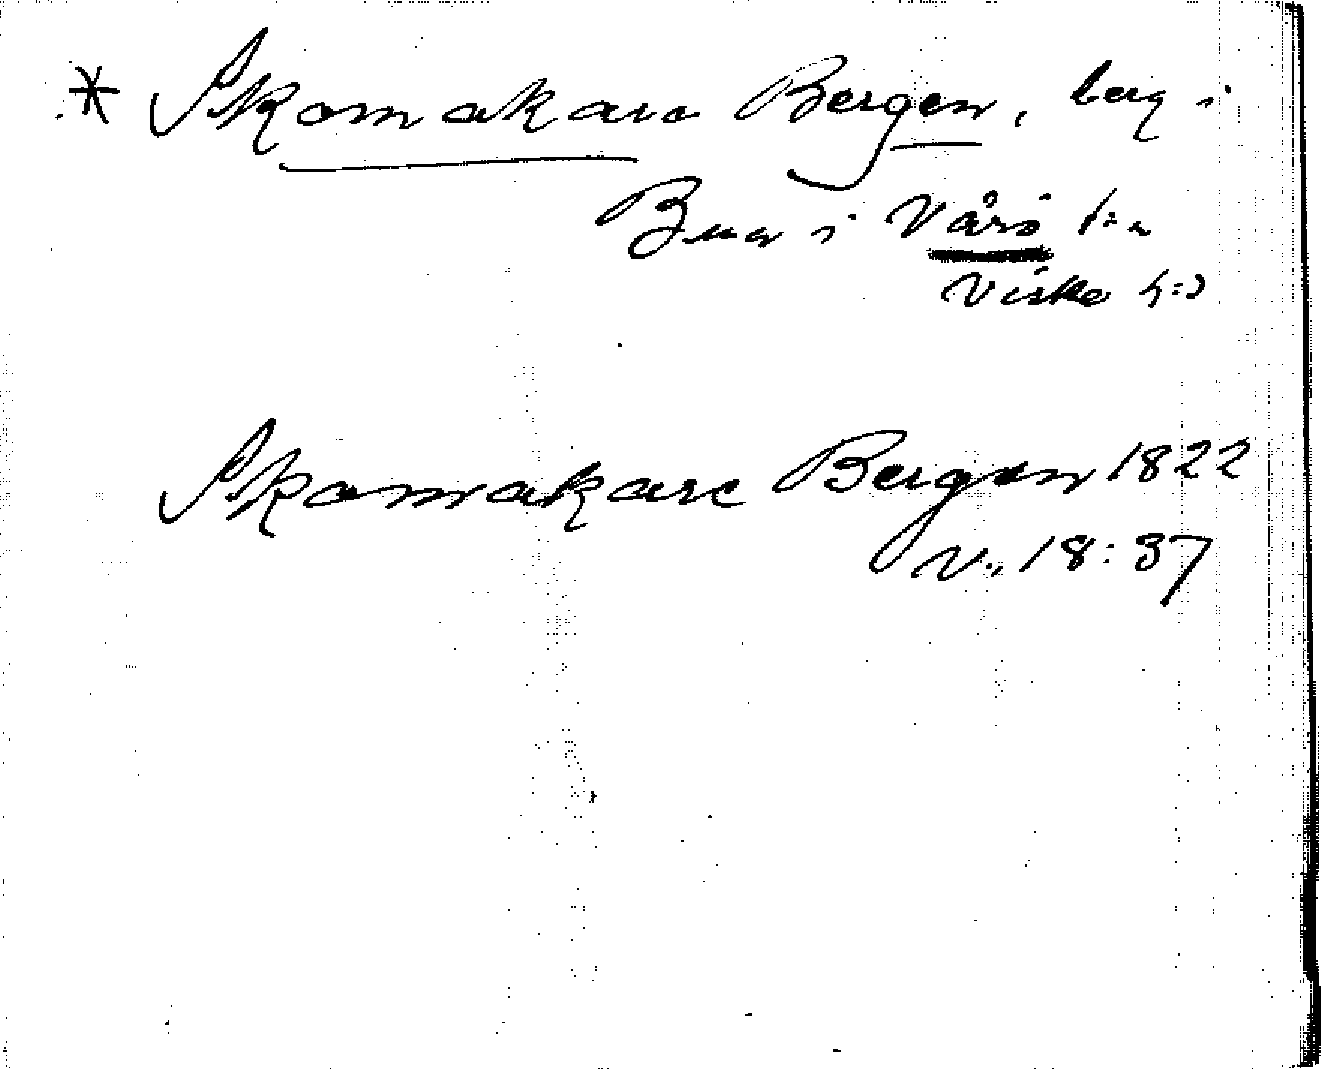 * Skomakare Bergen, berg i
Bua i Värö s:n
Viske h:d
Skomakare Bergen 1822
v., 18:37